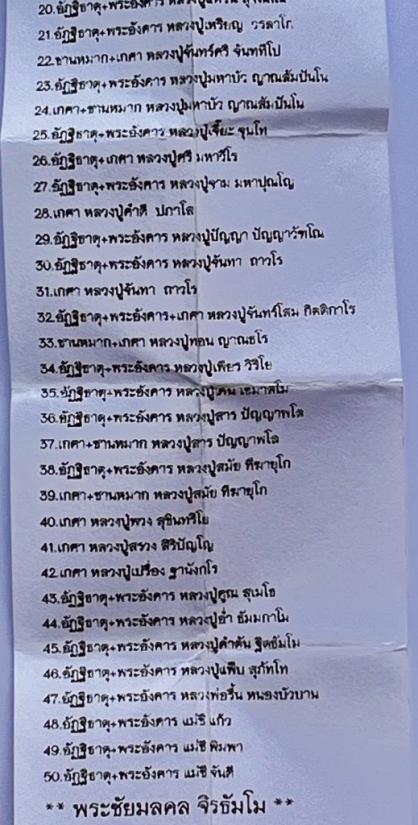 20.อัฏฐิธาตุ+พระอังคาร
21.อัฏฐิธาตุ+พระอังคาร หลวงปู่เหรียญ วรลาโภ
22.ชานหมาก+เกศา หลวงปู่จันทร์ศรี จันททีโป
23.อัฏฐิธาตุ+พระอังคาร หลวงปู่มหาบัว ญาณสัมปันโน
24.เกศา+ชานหมาก หลวงปู่มหาบัว ญาณสัมปันโน
25.อัฏฐิธาตุ+พระอังคาร หลวงปู่เจี๊ยะ จุนโท
26.อัฏฐิธาตุ+เกศา หลวงปู่ศรี มหาวีโร
27.อัฏฐิธาตุ+พระอังคาร หลวงปู่จาม มหาปุณโญ
28.เกศา หลวงปู่คำดี ปภาโส
29.อัฏฐิธาตุ+พระอังคาร หลวงปู่ปัญญา ปัญญาวัฑโฒ
30.อัฏฐิธาตุ+พระอังคาร หลวงปู่จันทา ถาวโร
31.เกศา หลวงปู่จันทา ถาวโร
32.อัฏฐิธาตุ+พระอังคาร+เกศา หลวงปู่จันทร์โสม กิตติกาโร
33.ชานหมาก+เกศา หลวงปู่ทอน ญาณธโร
34.อัฏฐิธาตุ+พระอังคาร หลวงปู่เพียร วิริโย
35.อัฏฐิธาตุ+พระอังคาร
36.อัฏฐิธาตุ+พระอังคาร หลวงปู่สาร ปัญญาพโล
37.เกศา+ชานหมาก หลวงปู่สาร ปัญญาพโล
38.อัฏฐิธาตุ+พระอังคาร หลวงปู่สมัย ทีฆายุโก
39.เกศา+ชานหมาก หลวงปู่สมัย ทีฆายุโก
40.เกศา หลวงปู่พวง สุขินทริโย
41.เกศา หลวงปู่สรวง สิริปัญโญ
42.เกศา หลวงปู่เปรื่อง ฐานังกโร
43.อัฏฐิธาตุ+พระอังคาร หลวงปู่คูณ สุเมโธ
44.อัฏฐิธาตุ+พระอังคาร หลวงปู่อ่ำ ธัมมกาโม
45.อัฏฐิธาตุ+พระอังคาร หลวงปู่คำตัน ฐิตธัมโม
46.อัฏฐิธาตุ+พระอังคาร หลวงปู่แฟ๊บ สุภัทโท
47.อัฏฐิธาตุ+พระอังคาร หลวงพ่อรื่น หนองบัวบาน
48.อัฏฐิธาตุ+พระอังคาร แม่ชี แก้ว
49.อัฏฐิธาตุ+พระอังคาร แม่ชี พิมพา
50.อัฏฐิธาตุ+พระอังคาร แม่ชี จันดี
** พระชัยมลคล จิรธัมโม **